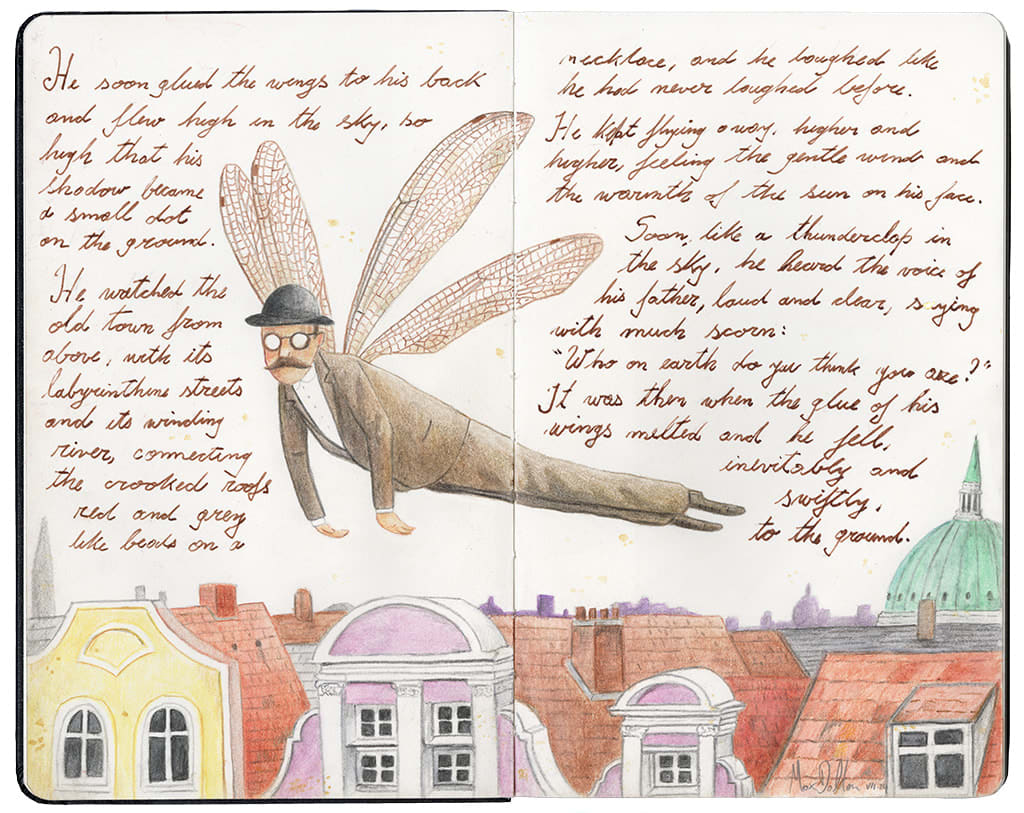 He soon glued the wings to his back
and flew high in the sky, so
high that his
shadow became
a small dot
on the ground.
He watched the
old town from
above, with its
labyrinthine streets
and its winding
river, connecting
the crooked roofs
red and grey
like beads on a
necklace, and he laughed like
he had never laughed before.
He kept flying away, higher and
higher, feeling the gentle wind and
the warmth of the sun on his face.
Soon, like a thunderclap in
the sky, he heard the voice of
his father, loud and clear, saying
with much scorn:
"Who on earth do you think you are?"
It was then when the glue of his
wings melted and he fell,
inevitably and
swiftly,
to the ground.
Max Dalton